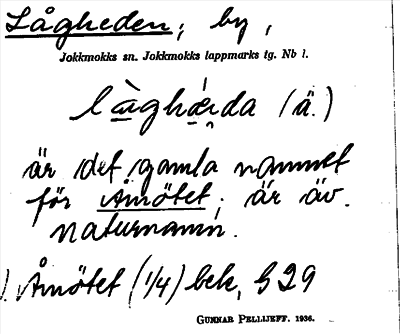 Lågheden; by,
Jokkmokks sn. Jokkmokks lappmarks tg. Nb l.
làghǽrda (ä.)
är det gamla namnet
för Åmötet; är äv.
naturnamn.
Åmötet (1/4) bek, G 29
GUNNAR PELLIJEFF. 1936.